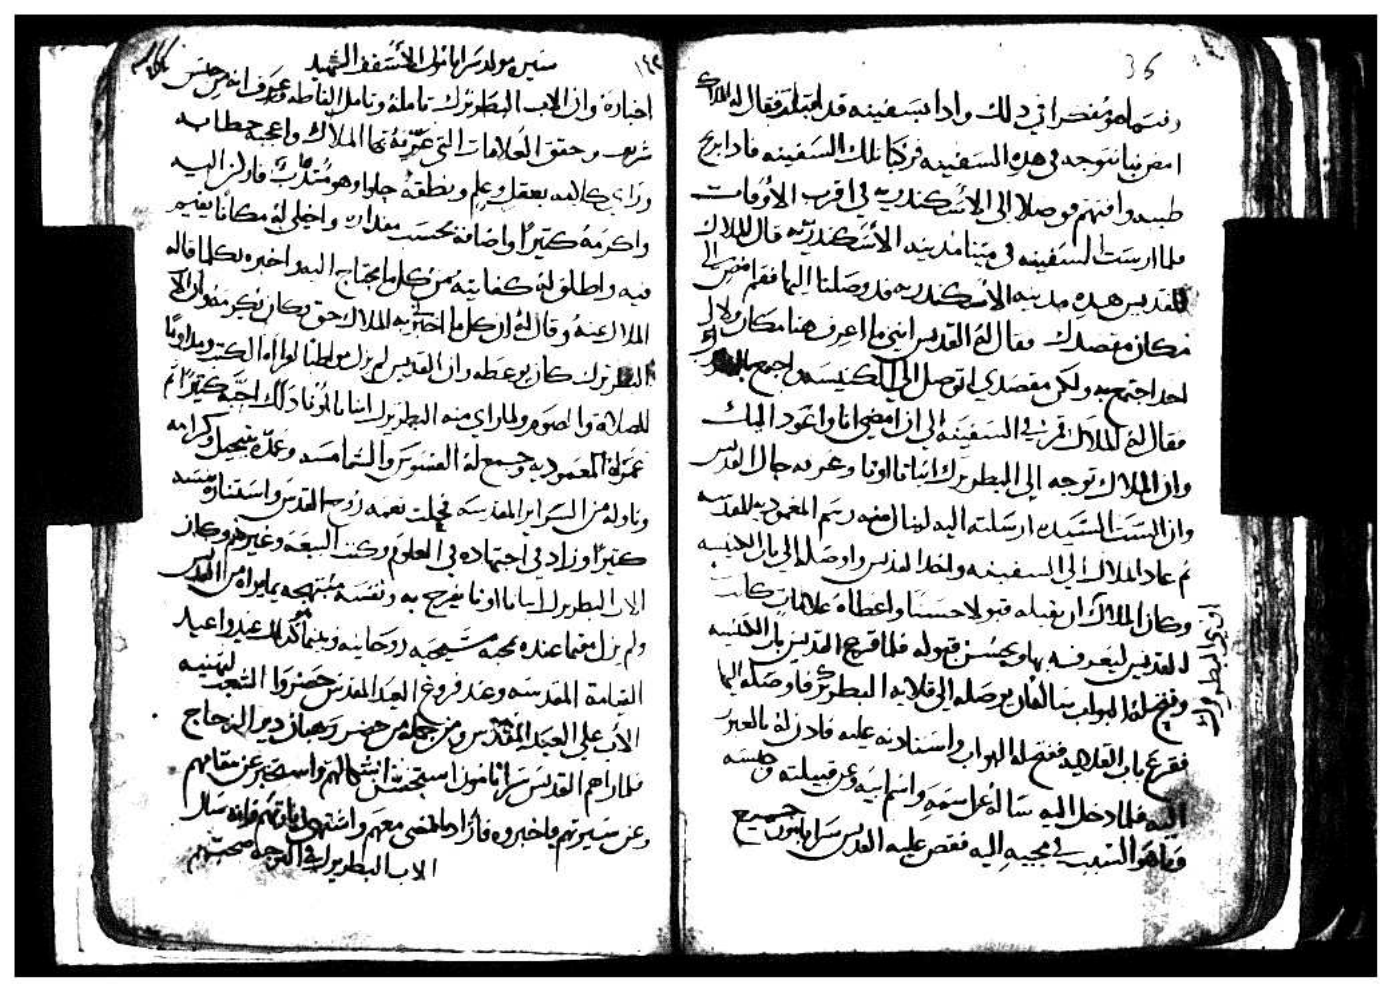 36
وفيما هو مفكرا في ذلك واذا بسفينه قد اقبلة فقال له الملاك
امض بنا نتوجه في هذه السفينه فركبا تلك السفينه فاذا بريح
طيبه وافتهم فوصلا الى الاسكندريه في اقرب الاوقات
فلما ارست السفينه في مينا مدينه الاسكندريه قال الملاك
للقديس هذه مدينه الاسكندريه قد وصلنا اليها فقم امض الى
مكان مقصدك فقال له القديس انني ما اعرف هنا مكان ولا لي
احد اجتمع به ولكن مقصدي اتوصل الى الكنيسه واجتمع
فقال له الملاك في السفينه الى ان امضي انا واعود اليك
وان الملاك توجه الى البطريرك اناتا اونا وعرفه حال القديس
وان الست السيده ارسلته اليه لينال منه رسم المعموديه المقدسه
ثم عاد الملاك الى السفينه واخذ القديس واوصله الى باب الكنيسه
وكان الملاك ان يقبله قبولا حسنا واعطاه علامات كانت
للقديس ليعرفه بها ويحسن قبوله فلما قرع القديس باب الكنيسه
وفتح له البواب سأله ان يوصله الى قلايه البطريرك فاوصله اليها
فقرع باب القلايه ففتح له البواب واستاذنه عليه فاذن له بالعبور
اليه فلما دخل اليه ساله عن اسمه واسم ابيه وعن قبيلته وجنسه
وما هو السبب في مجيه اليه فقص عليه القديس سرابامون جميع
الى البطريرك
سنين مولد سرابامون الاسقف الشهيد
اخباره وان الاب البطريرك تامله وتامل الفاظه وعرف انه من جنس
شريف وحقق العلامات التي عرفه بها الملاك واعجبه خطابه
وراي كاليه بعقل وعلم ونطقه حلوا وهو متدرب فاوكز اليه
واكرمه كثيرا واضافه بحسب مقداره واخلى له مكانا يقيم
فيه واطلق له كفايته من كلما يحتاج اليه واخبره بكلما قاله
الملاك عنه وقال له ان كل ما اخبرني به الملاك حق وكان
البطريرك كان يوعظه وان القديس لم يزل مواظبا لقراة الكتب ومداوما
للصلاة والصوم ولما راي منه البطريرك اناتا اونا ذلك احبه كثيرا ثم
عمده المعموديه وجمع له القسوس والشمامسه وعمده بتبجيل وكرامه
وناوله من السراير المقدسه فحلت نعمه روح القدس واستنارة نفسه
كثيرا وزاد في اجتهاده في العلوم وكتب البيعه وغيرهم وكان
الاب البطريرك اناتا اونا يفرح به ونفسه مبتهجه بما يراه من القديس
ولم يزل مقيما عنده بمحبه مسيحيه روحانيه وبينما هو كذلك عيدوا عيد
القيامة المقدسه وعند فروغ العيد المقدس حضروا الشعب لتهنيه
الاب على العيد المقدس ومن جمله من حضر رهبان دير الزجاج
فلما راهم القديس سرابامون استحسن اشكالهم واستخبر عن مقامهم
وعن سيرتهم فاخبروه فاراد المضي معهم واشتهى رفاقتهم فانه سال
الاب البطريرك في التوجه صحبتهم